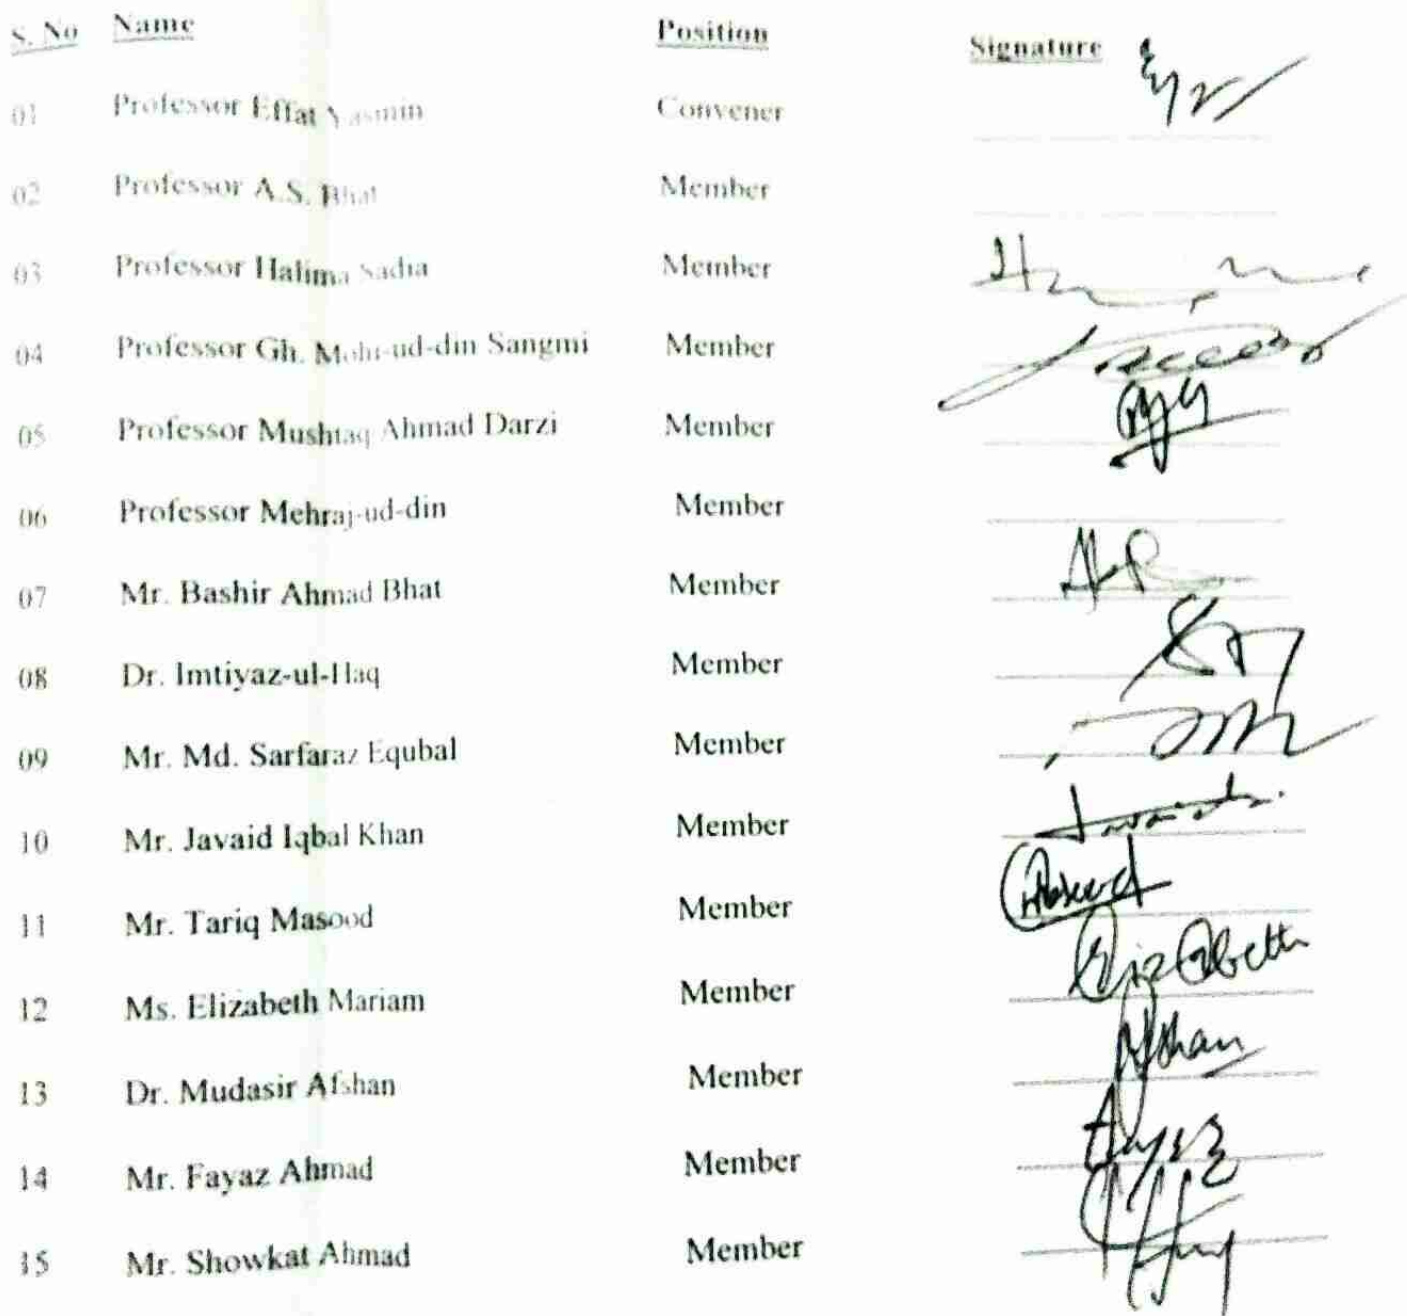 S. No Name Position Signature
01 Professor Effat Yasmin Convener
02 Professor A.S. Bhat Member
03 Professor Halima Sadia Member
04 Professor Gh. Mohi-ud-din Sangmi Member
05 Professor Mushtaq Ahmad Darzi Member
06 Professor Mehraj-ud-din Member
07 Mr. Bashir Ahmad Bhat Member
08 Dr. Imtiyaz-ul-Haq Member
09 Mr. Md. Sarfaraz Equbal Member
10 Mr. Javaid Iqbal Khan Member
11 Mr. Tariq Masood Member
12 Ms. Elizabeth Mariam Member Elizabeth
13 Dr. Mudasir Afshan Member Afshan
14 Mr. Fayaz Ahmad Member
15 Mr. Showkat Ahmad Member